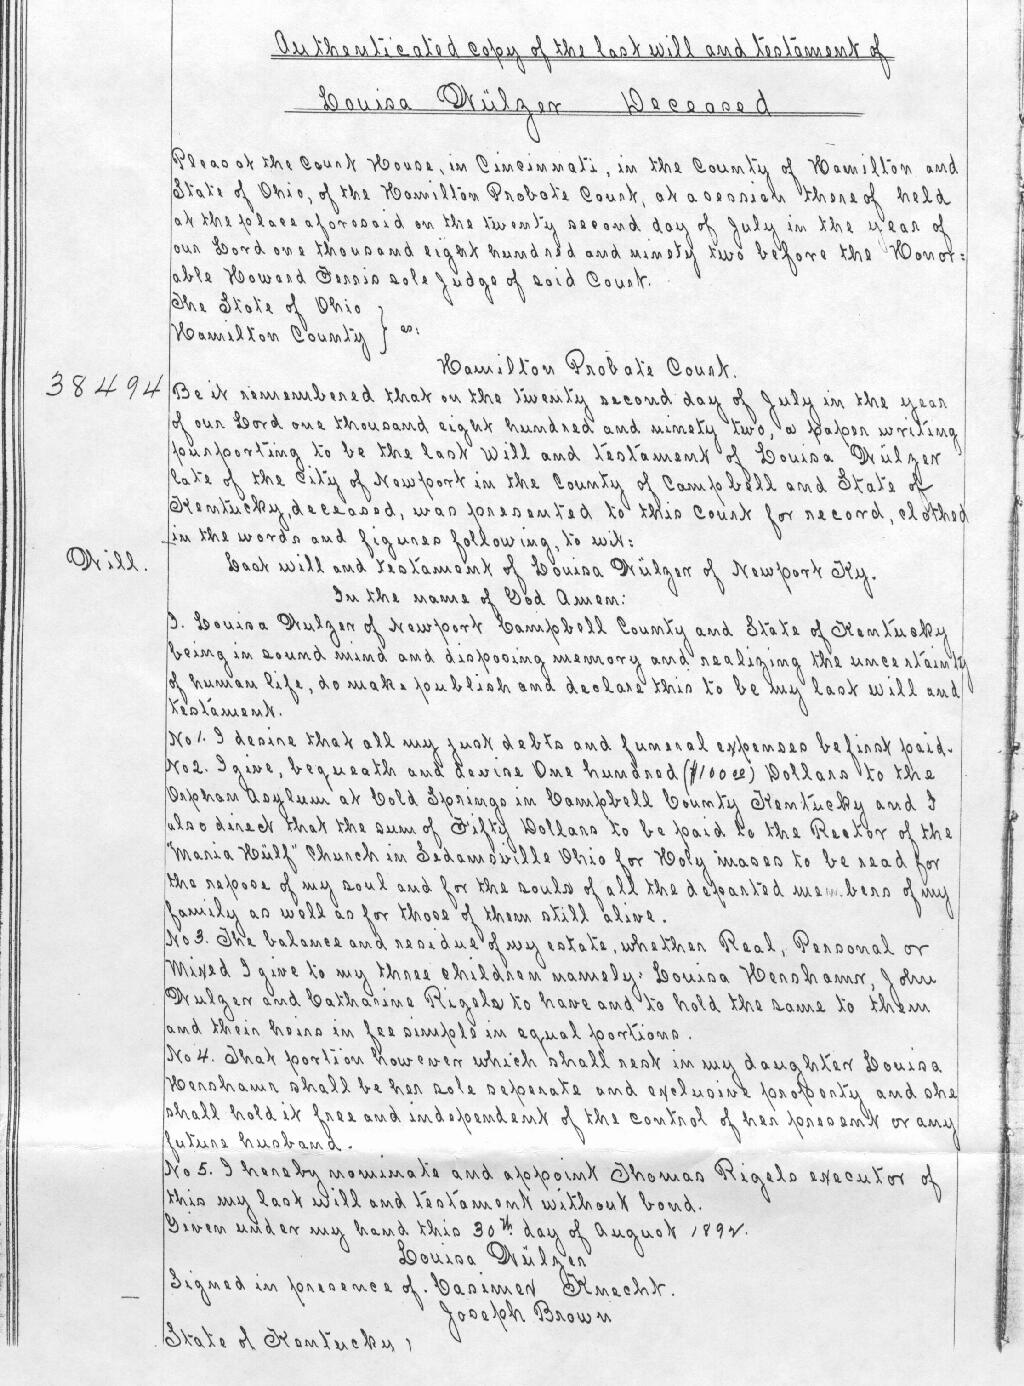 Authenticated copy of the last will and testament of
Louisa Wülzer Deceased
Pleas at the Court House, in Cincinnati, in the County of Hamilton and
State of Ohio, of the Hamilton Probate Court, at a session thereof held
at the place aforesaid on the twenty second day of July in the year of
our Lord one thousand eight hundred and ninety two before the Honor=
able Howard Ferris sole Judge of said Court.
The State of Ohio
Hamilton County } ss:
Hamilton Probate Court.
38494
Be it remembered that on the twenty second day of July in the year
of our Lord one thousand eight hundred and ninety two, a paper writing
purporting to be the last will and testament of Louisa Wülzer
late of the City of Newport in the County of Campbell and State of
Kentucky, deceased, was presented to this Court for record, clothed
in the words and figures following, to wit:
Will.
Last will and testament of Louisa Wülzer of Newport Ky.
In the name of God Amen:
I. Louisa Wulzer of Newport Campbell County and State of Kentucky
being in sound mind and disposing memory and realizing the uncertainty
of human life, do make publish and declare this to be my last will and
testament.
No 1. I desire that all my just debts and funeral expenses be first paid.
No 2. I give, bequeath and devise One hundred ($100 00) Dollars to the
Orphan Asylum at Cold Springs in Campbell County Kentucky and I
also direct that the sum of Fifty Dollars to be paid to the Rector of the
"Maria Hülf" Church in Sedamsville Ohio for Holy mases to be read for
the repose of my soul and for the souls of all the departed members of my
family as well as for those of them still alive.
No 3. The balance and residue of my estate, whether Real, Personal or
Mixed I give to my three children namely: Louisa Hershamr, John
Wulzer and Catharine Rigels to have and to hold the same to them
and their heirs in fee simple in equal portions.
No 4. That portion however which shall rest in my daughter Louisa
Hershamr shall be her sole seperate and exclusive property and she
shall hold it free and independent of the control of her present or any
future husband.
No 5. I hereby nominate and appoint Thomas Rigels executor of
this my last will and testament without bond.
Given under my hand this 30th day of August 189
Louisa Wülzer
Signed in presence of. Casimer Knecht.
Joseph Brown
State of Kentucky,